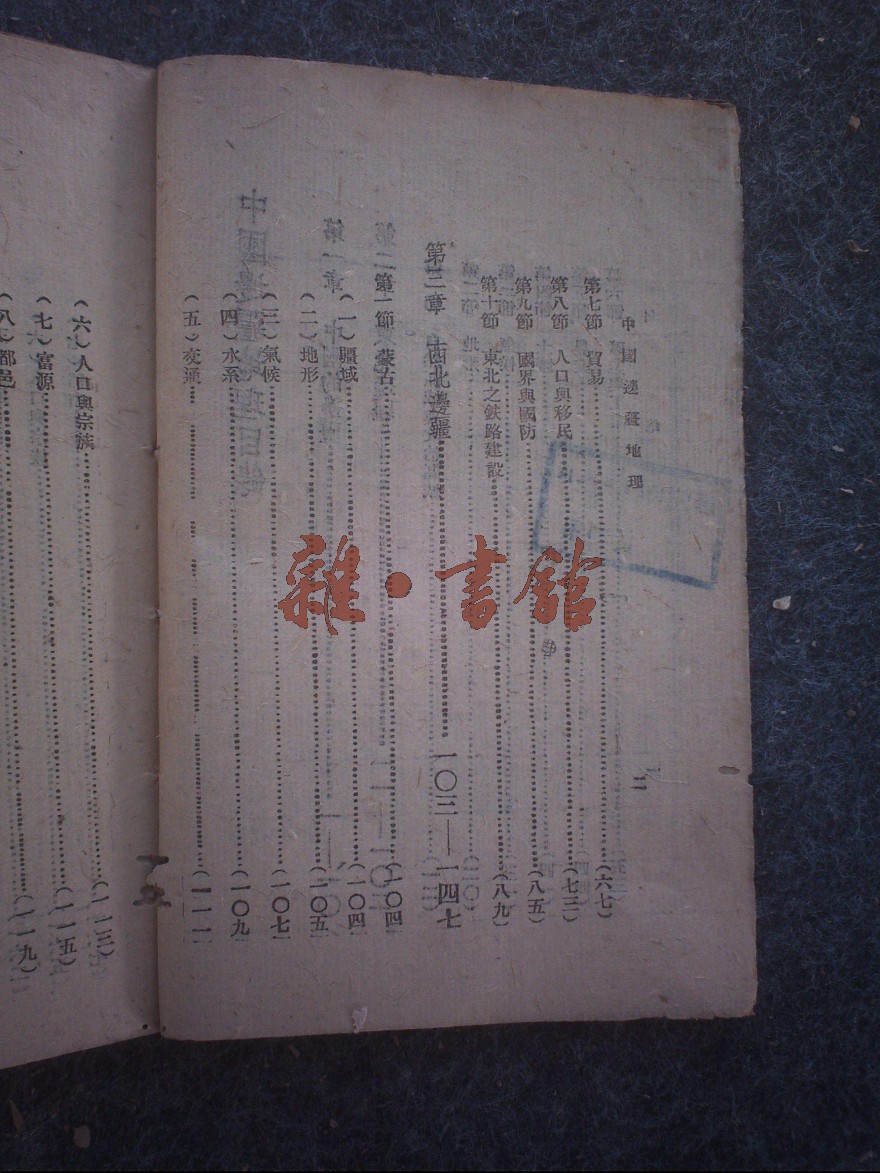 中國邊疆地理 二
第七節 貿易……(六七)
第八節 人口與移民……(七三)
第九節 國界與國防……(八五)
第十節 東北之鉄路建設……(八九)
第三章 西北邊疆……一〇三—一四七
第一節 蒙古……(一〇四
(一)疆域……(一〇四
(二)地形……(一〇五
(三)氣候……(一〇七
(四)水系……(一〇九
(五)交通……(一一一
(六)人口與宗族……(一一三)
(七)富源……(一一五)
(八)都邑……(一一九)
雜·書館